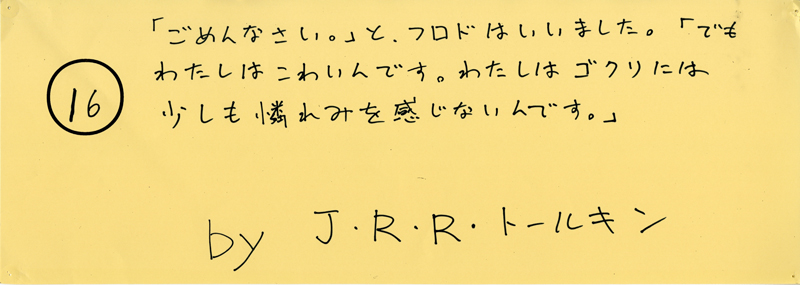 「ごめんなさい。」と、フロドはいいました。「でも
わたしはこわいんです。わたしはゴクリには
少しも憐れみを感じないんです。」
16
by J・R・R・トールキン